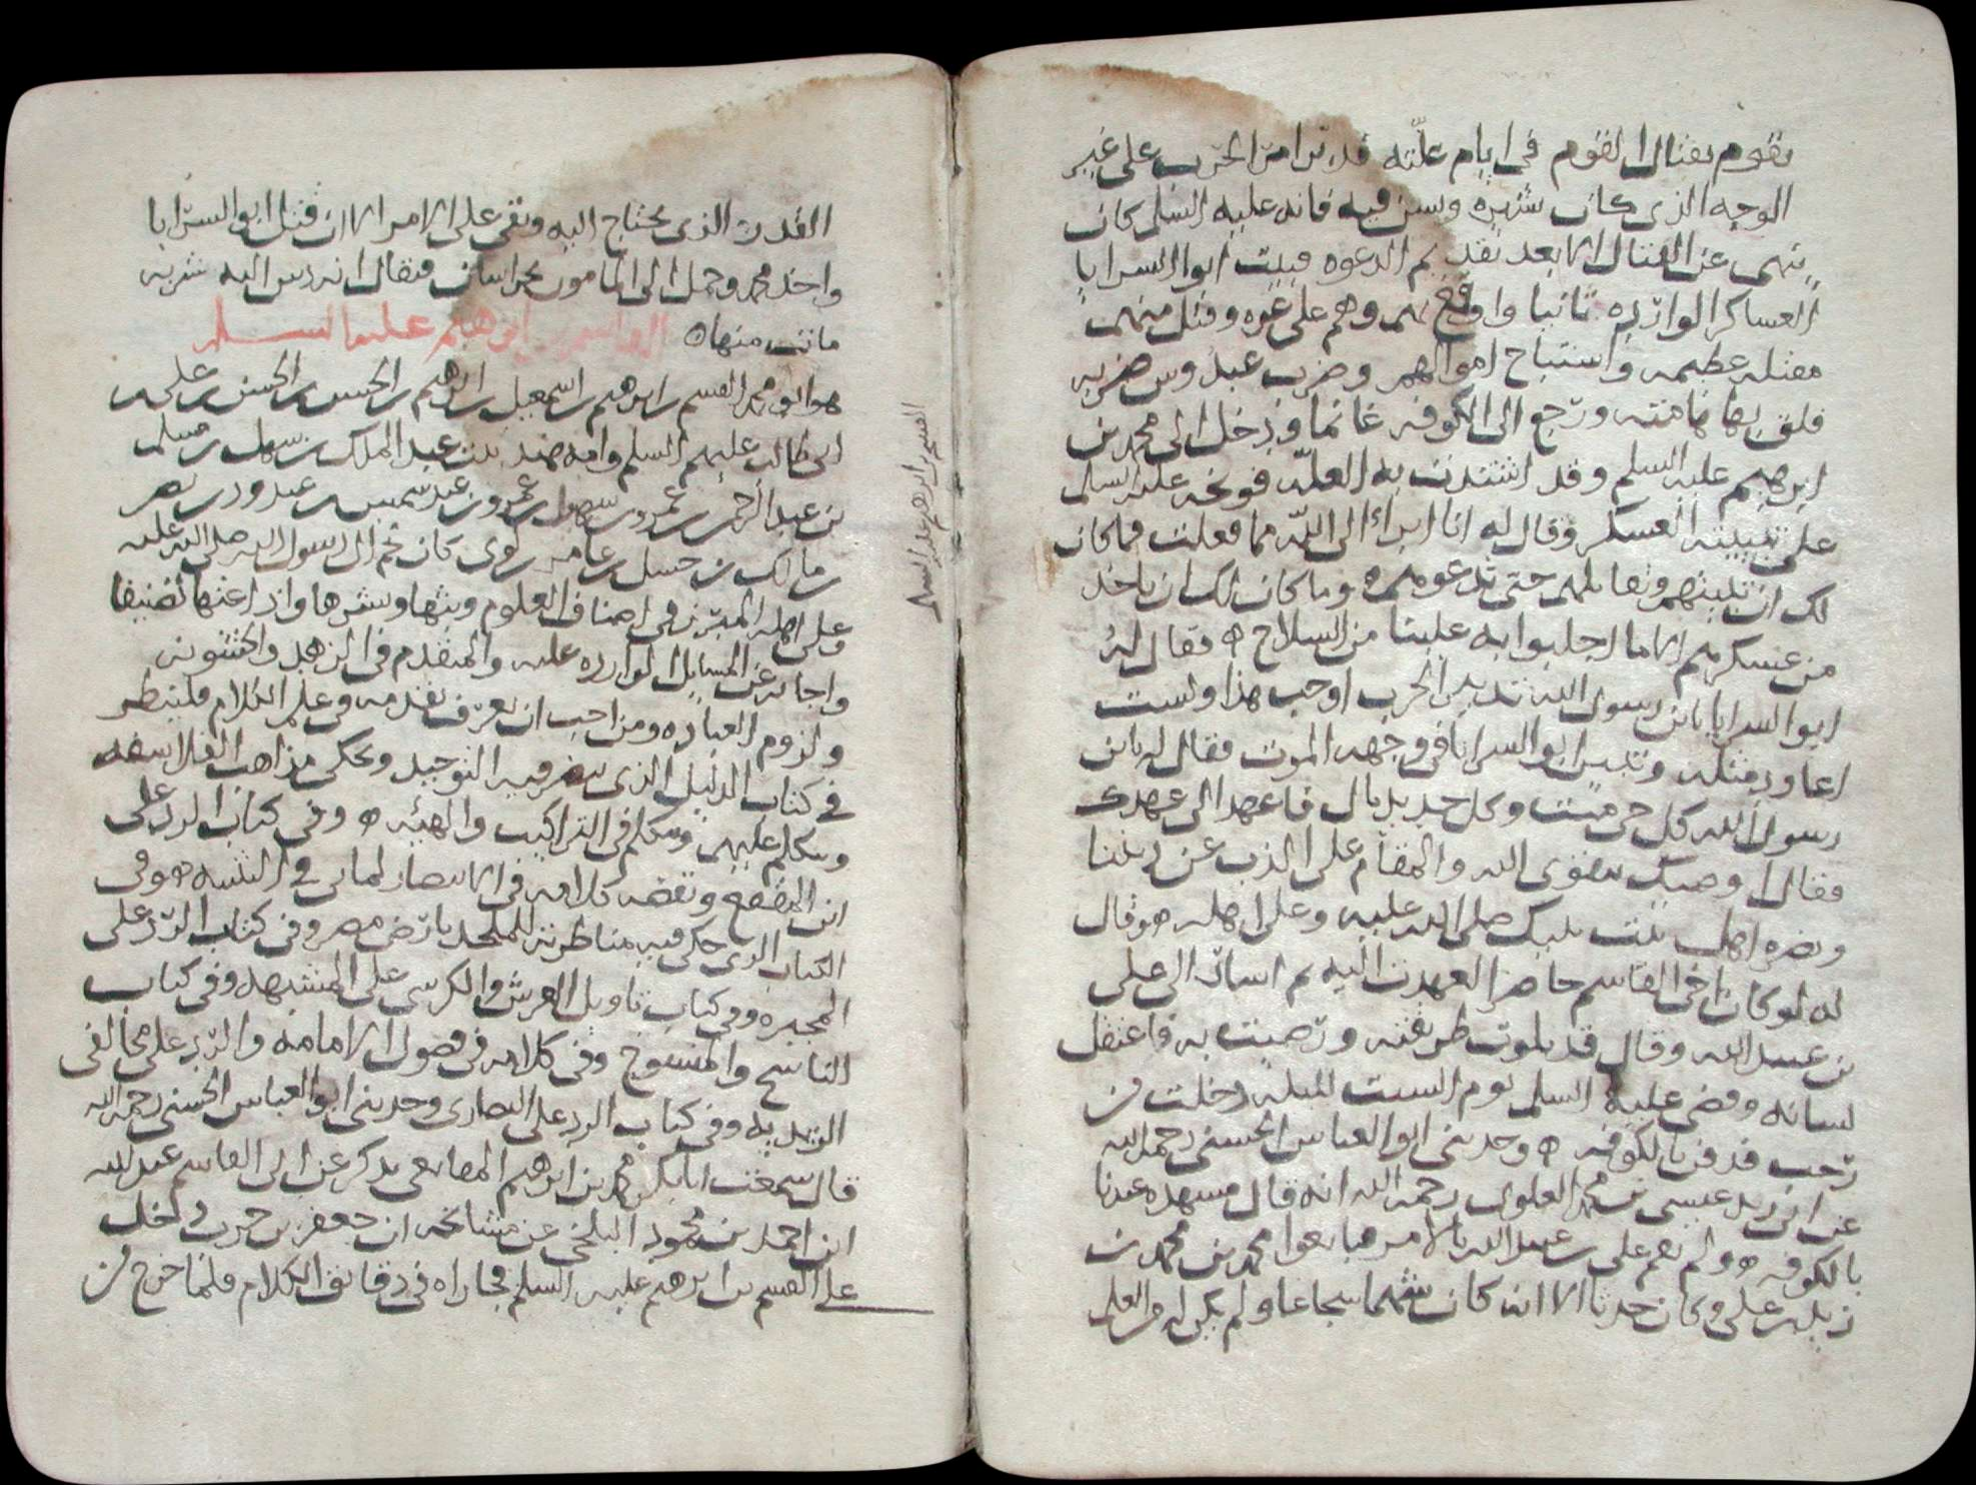 يقوم بقتال القوم في ايام علته قدبر امر الحرب على غير
الوجه الذي كان شهره وسن فيه فانه عليه السلم كان
ينهى عن القتال الا بعد تقديم الدعوه فبيت ابو السرايا
العساكر الوارده ثانيا واوقع بهم وهم على غره وقتل منهم
مقتله عظيمه واستباح اموالهم وضرب عبدوس ضربه
فلق بها هامته ورجع الى الكوفه غانما ودخل الى محمد بن
ابرهيم عليه السلم وقد اشتدت به العله فوبخه عليه السلم
على تبييته العسكر وقال له انا ابراء الى الله مما فعلت فما كان
لك ان تبيتهم وتقاتلهم حتى تدعوهم ه وما كان لك ان ياخذ
من عسكرهم الا ما اجلبوا به علينا من السلاح ه فقال له
ابو السرايا يابن رسول الله تدبير الحرب اوجب هذا ولست
اعاود مثله وتبين ابو السرايا في وجهه الموت فقال له يابن
رسول الله كل حي ميت وكل جديد بال فاعهد الى عهدك
فقال اوصيك بتقوى الله والمقام على الذب عن دينك
ونصره اهل بيت نبيك صلى الله عليه وعلى اهله ه وقال
له لو كان اخي القاسم حاضرا لعهدت اليه ثم اشار الى علي
بن عبيد الله وقال قد بلوت طريقته ورضيت به فاعتقل
لسانه وقضى عليه السلم يوم السبت لليله دخلت من
رجب فدفن بالكوفه ه وحدثني ابو العباس الحسني رحمه الله
عن ابي زيد عيسى بن محمد العلوي رحمه الله انه قال مشهده عندنا
بالكوفه ه ولم يقم علي بن عبيد الله بالامر فبايعوا محمد بن محمد بن
زيد بن علي وكان حدثا الا انه كان شهما شجاعا ولم يكن له من العلم
القدر الذي يحتاج اليه وبقي على الامر الى ان قتل ابو السرايا
واخذ محمد وحمل الى المامون بخراسان فيقال انه دس اليه شربه
مات منها ه القاسم بن ابرهيم عليهما السلم
هو ابو محمد القسم بن ابرهيم بن اسمعيل بن ابرهيم بن الحسن بن الحسن بن علي بن
ابي طالب عليهم السلم وامه هند بنت عبد الملك بن سهل بن مسلم
بن عبد الرحمن بن عمرو بن سهيل بن عمرو بن عبد شمس بن عبد ود بن نصر
بن مالك بن حسل بن عامر بن لوي كان نجم ال رسول الله صلى الله عليه
وعلى اهله المبرز في اصناف العلوم وبثها ونشرها واذاعتها تصنيفا
واجابه عن المسايل الوارده عليه والمتقدم في الزهد والخشونه
ولزوم العباده ومن احب ان يعرف تقدمه في علم الكلام فلينظر
في كتاب الدليل الذي ينصر فيه التوحيد ويحكي مذاهب الفلاسفه
ويتكلم عليهم ويتكلم في التراكيب والهيئه ه وفي كتاب الرد على
ابن المقفع ونقضه كلامه في الانتصار لماني في التثنيه ه وفي
الكتاب الذي حكى فيه مناظرته للملحد بارض مصر وفي كتاب الرد على
المجبره وفي كتاب تاويل العرش والكرسي على المشبهه وفي كتاب
الناسخ والمنسوخ وفي كلامه في فصول الامامه والرد على مخالفي
الزيديه وفي كتاب الرد على النصارى وحدثني ابو العباس الحسني رحمه الله
قال سمعت ابا بكر محمد بن ابرهيم المقانعي يذكر عن ابي القاسم عبد الله
ابن احمد بن محمود البلخي عن مشائخه ان جعفر بن حرب دخل
على القسم بن ابرهيم عليه السلم فجاراه في دقايق الكلام فلما خرج من
القسم بن ابرهيم عليه السلم